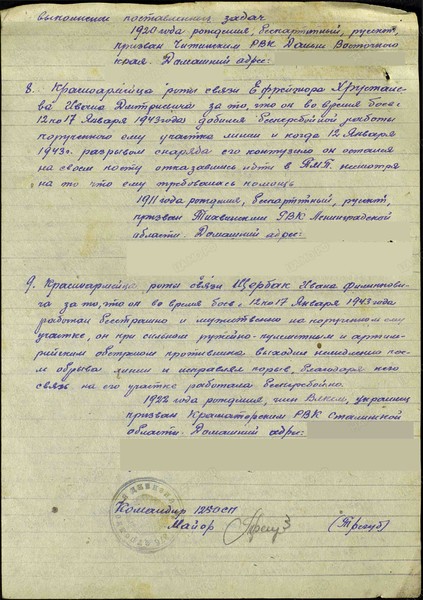 выполнении поставленных задач.
1920 года рождения, беспартийный, русский,
призван Читинским РВК Дальне Восточного
края. Домашний адрес:
8. Красноармейца роты связи Ефрейтора Хрустале
ва Ивана Дмитриевича за то, что он во время боев с
12 по 17 Января 1943 года добился бесперебойной работы
порученного ему участка линии и когда 12 Января
1943 г. разрывом снаряда его контузило он остался
на своем посту отказавшись идти в ПМП. несмотря
на то что ему требовалась помощь
1911 года рождения, беспартийный, русский,
призван Тихвинским РВК Ленинградской
области. Домашний адрес:
9. Красноармейца роты связи Щербак Ивана Филиппови-
ча за то, что он во время боев с 12 по 17 Января 1943 года
работал бесстрашно и мужественно на порученном ему
участке, он при сильном ружейно-пулеметным и артил-
рийским обстрелом противника выходил немедленно
обрыва линии и исправлял порыв, благодаря чего
связь на его участке работала бесперебойно.
1922 года рождения, член Влксм, украинец
призван Краматорским РВК Сталинской
области. Домашний адрес:
Командир 1280 СП
Майор (Трегуб)